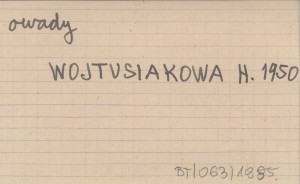 owady
WOJTUSIAKOWA H. 1950
BT/063/1885